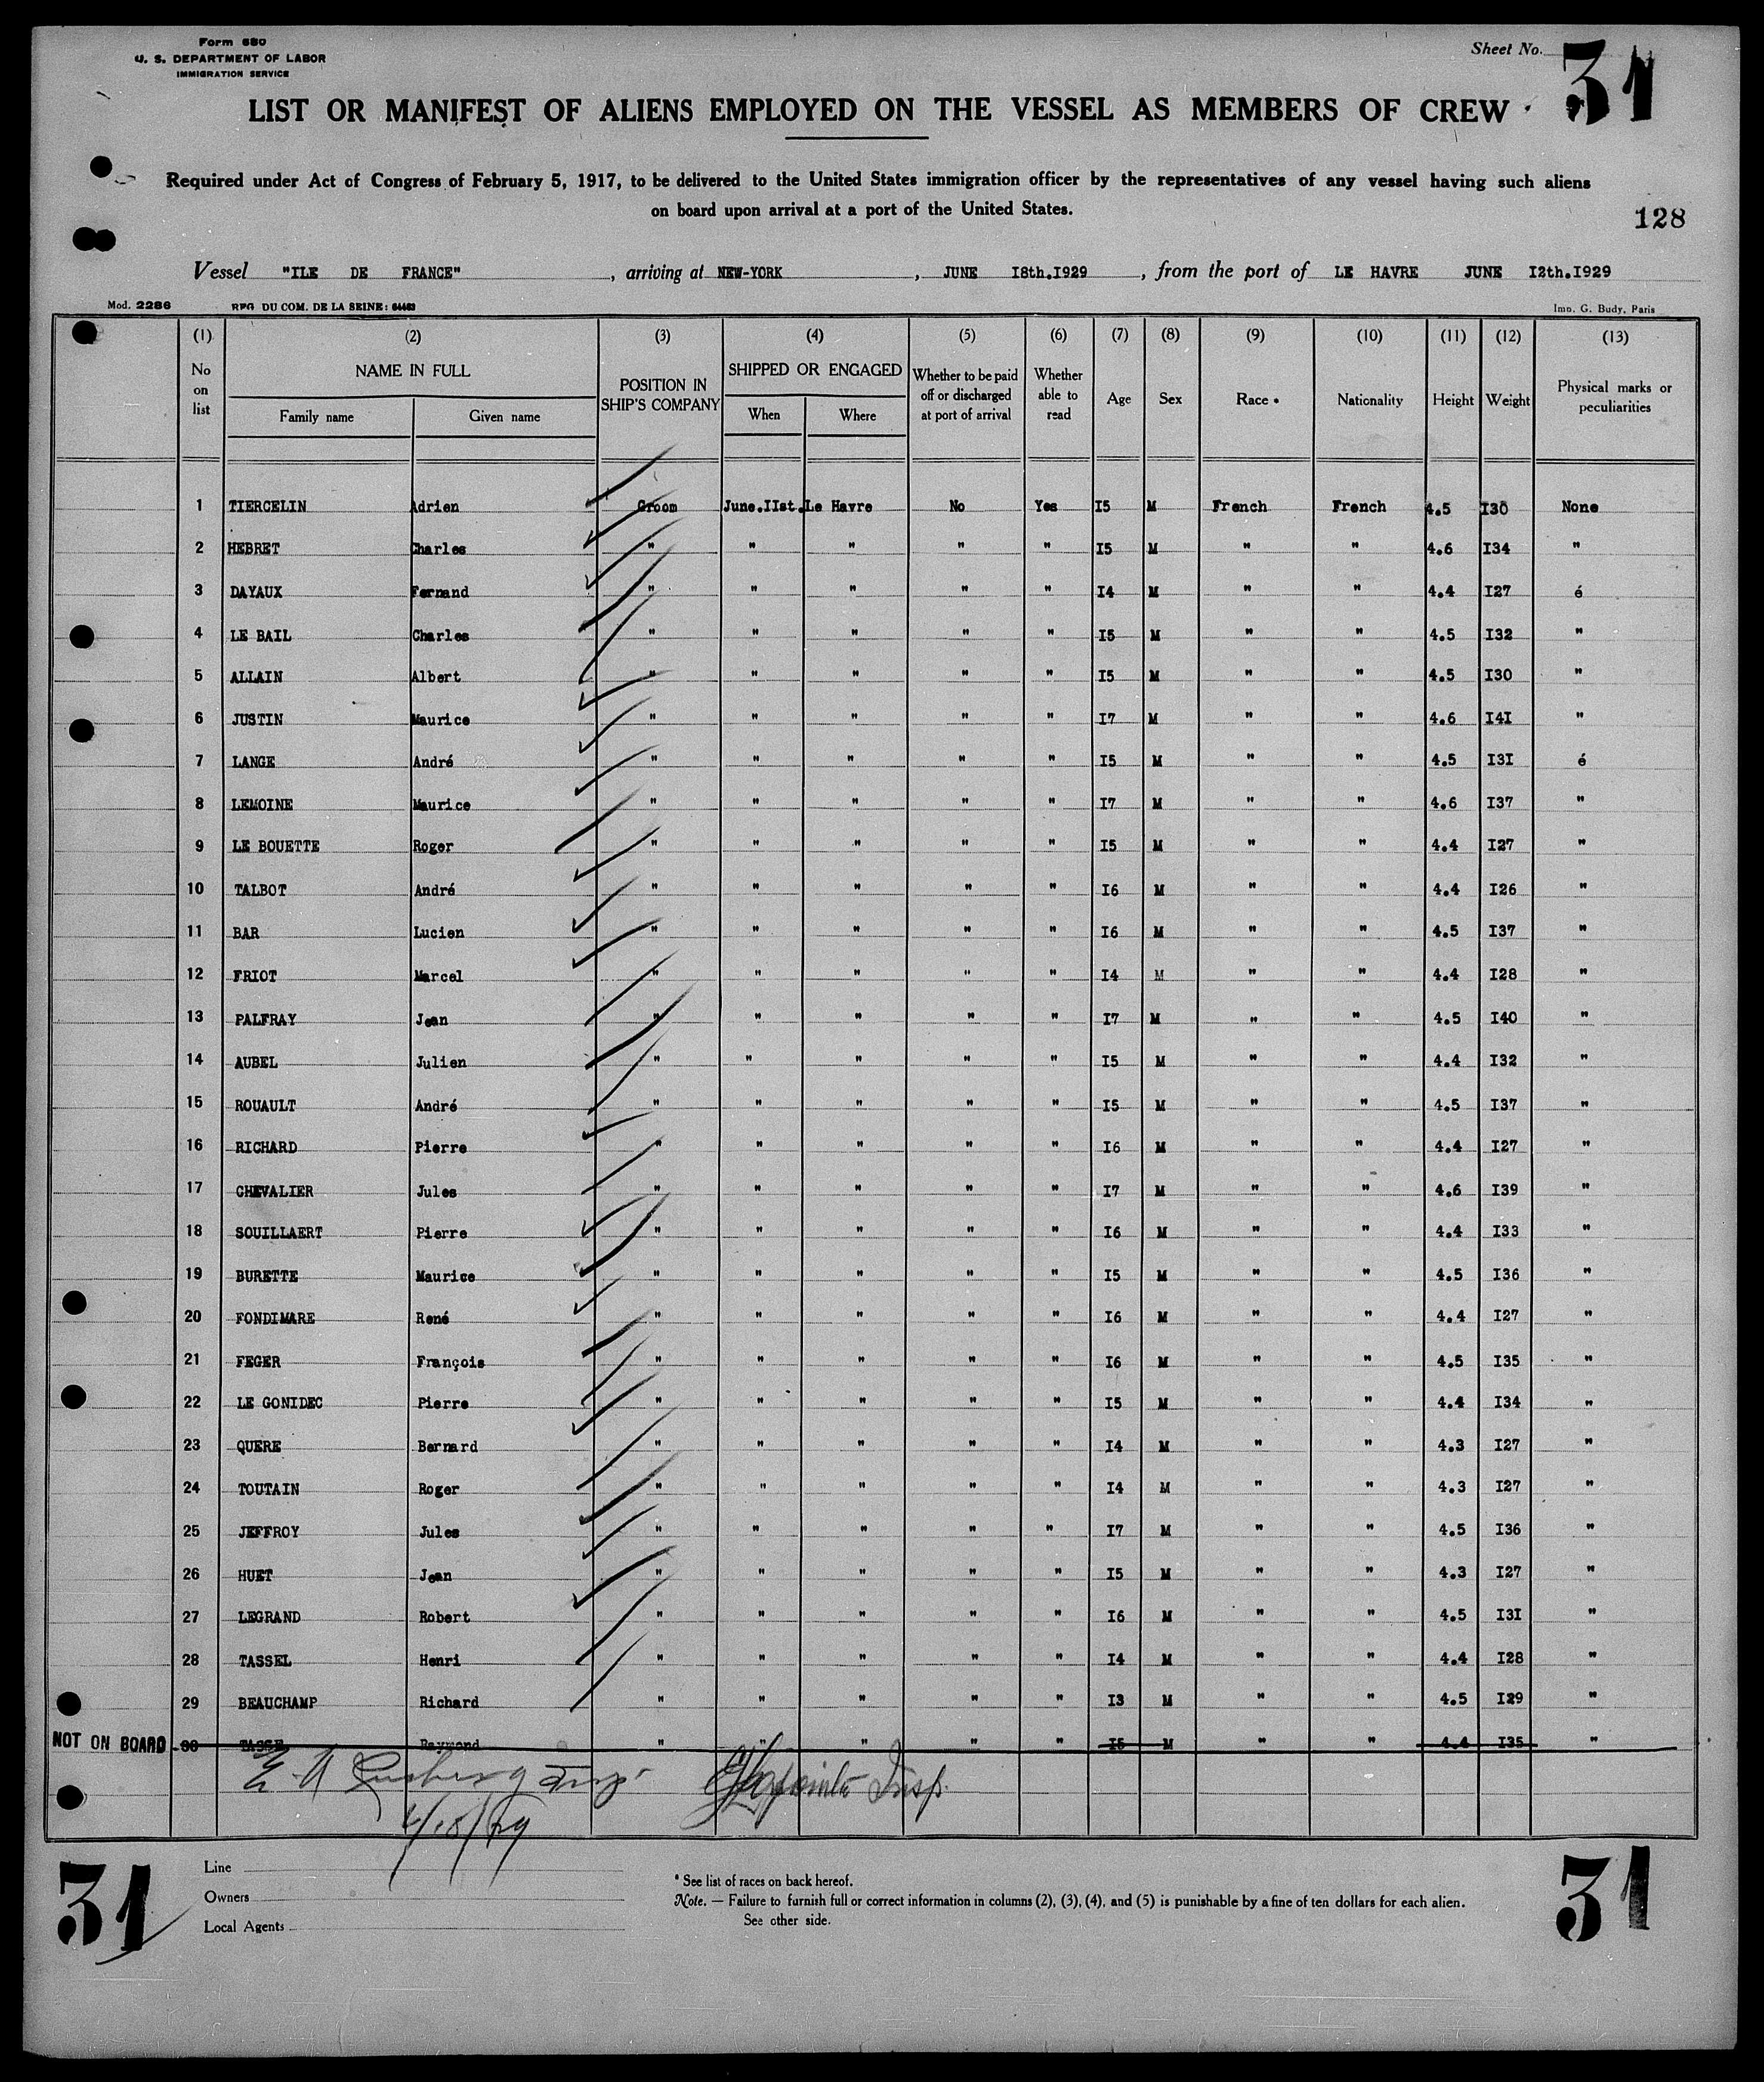 Form 680
U. S. DEPARTMENT OF LABOR
IMMIGRATION SERVICE
Sheet No. 31
LIST OR MANIFEST OF ALIENS EMPLOYED ON THE VESSEL AS MEMBERS OF CREW
Required under Act of Congress of February 5, 1917, to be delivered to the United States immigration officer by the representatives of any vessel having such aliens
on board upon arrival at a port of the United States.
128
Vessel "ILE DE FRANCE", arriving at NEW-YORK, JUNE I8th.I929, from the port of LE HAVRE JUNE I2th.I929
Mod. 2286 DU COM. DE LA SEINE: Imp. G. Budy, Paris
(1) (2) (3) (4) (5) (6) (7) (8) (9) (10) (11) (12) (13)
No on list NAME IN FULL Family name Given name POSITION IN SHIP'S COMPANY SHIPPED OR ENGAGED When Where Whether to be paid off or discharged at port of arrival Whether able to read Age Sex Race • Nationality Height Weight Physical marks or peculiarities
1 TIERCELIN Adrien Groom June.IIst. Le Havre No Yes I5 M French French 4.5 I30 None
2 HEBRET Charles " " " " " I5 M " " 4.6 I34 "
3 DAYAUX Fernand " " " " " I4 M " " 4.4 I27 é
4 LE BAIL Charles " " " " " I5 M " " 4.5 I32 "
5 ALLAIN Albert " " " " " I5 M " " 4.5 I30 "
6 JUSTIN Maurice " " " " " I7 M " " 4.6 I4I "
7 LANGE André " " " " " I5 M " " 4.5 I3I é
8 LEMOINE Maurice " " " " " I7 M " " 4.6 I37 "
9 LE BOUETTE Roger " " " " " I5 M " " 4.4 I27 "
10 TALBOT André " " " " " I6 M " " 4.4 I26 "
11 BAR Lucien " " " " " I6 M " " 4.5 I37 "
12 FRIOT Marcel " " " " " I4 M " " 4.4 I28 "
13 PALFRAY Jean " " " " " I7 M " " 4.5 I40 "
14 AUBEL Julien " " " " " I5 M " " 4.4 I32 "
15 ROUAULT André " " " " " I5 M " " 4.5 I37 "
16 RICHARD Pierre " " " " " I6 M " " 4.4 I27 "
17 CHEVALIER Jules " " " " " I7 M " " 4.6 I39 "
18 SOUILLAERT Pierre " " " " " I6 M " " 4.4 I33 "
19 BURETTE Maurice " " " " " I5 M " " 4.5 I36 "
20 FONDIMARE René " " " " " I6 M " " 4.4 I27 "
21 FEGER François " " " " " I6 M " " 4.5 I35 "
22 LE GONIDEC Pierre " " " " " I5 M " " 4.4 I34 "
23 QUERE Bernard " " " " " I4 M " " 4.3 I27 "
24 TOUTAIN Roger " " " " " I4 M " " 4.3 I27 "
25 JEFFROY Jules " " " " " I7 M " " 4.5 I36 "
26 HUET Jean " " " " " I5 M " " 4.3 I27 "
27 LEGRAND Robert " " " " " I6 M " " 4.5 I3I "
28 TASSEL Henri " " " " " I4 M " " 4.4 I28 "
29 BEAUCHAMP Richard " " " " " I3 M " " 4.5 I29 "
NOT ON BOARD 30 TASSE Raymond " " " " " I5 M " " 4.4 I35 "
Insp.
6/18/29
31 31
Line
Owners
Local Agents
* See list of races on back hereof.
Note. — Failure to furnish full or correct information in columns (2), (3), (4), and (5) is punishable by a fine of ten dollars for each alien.
See other side.